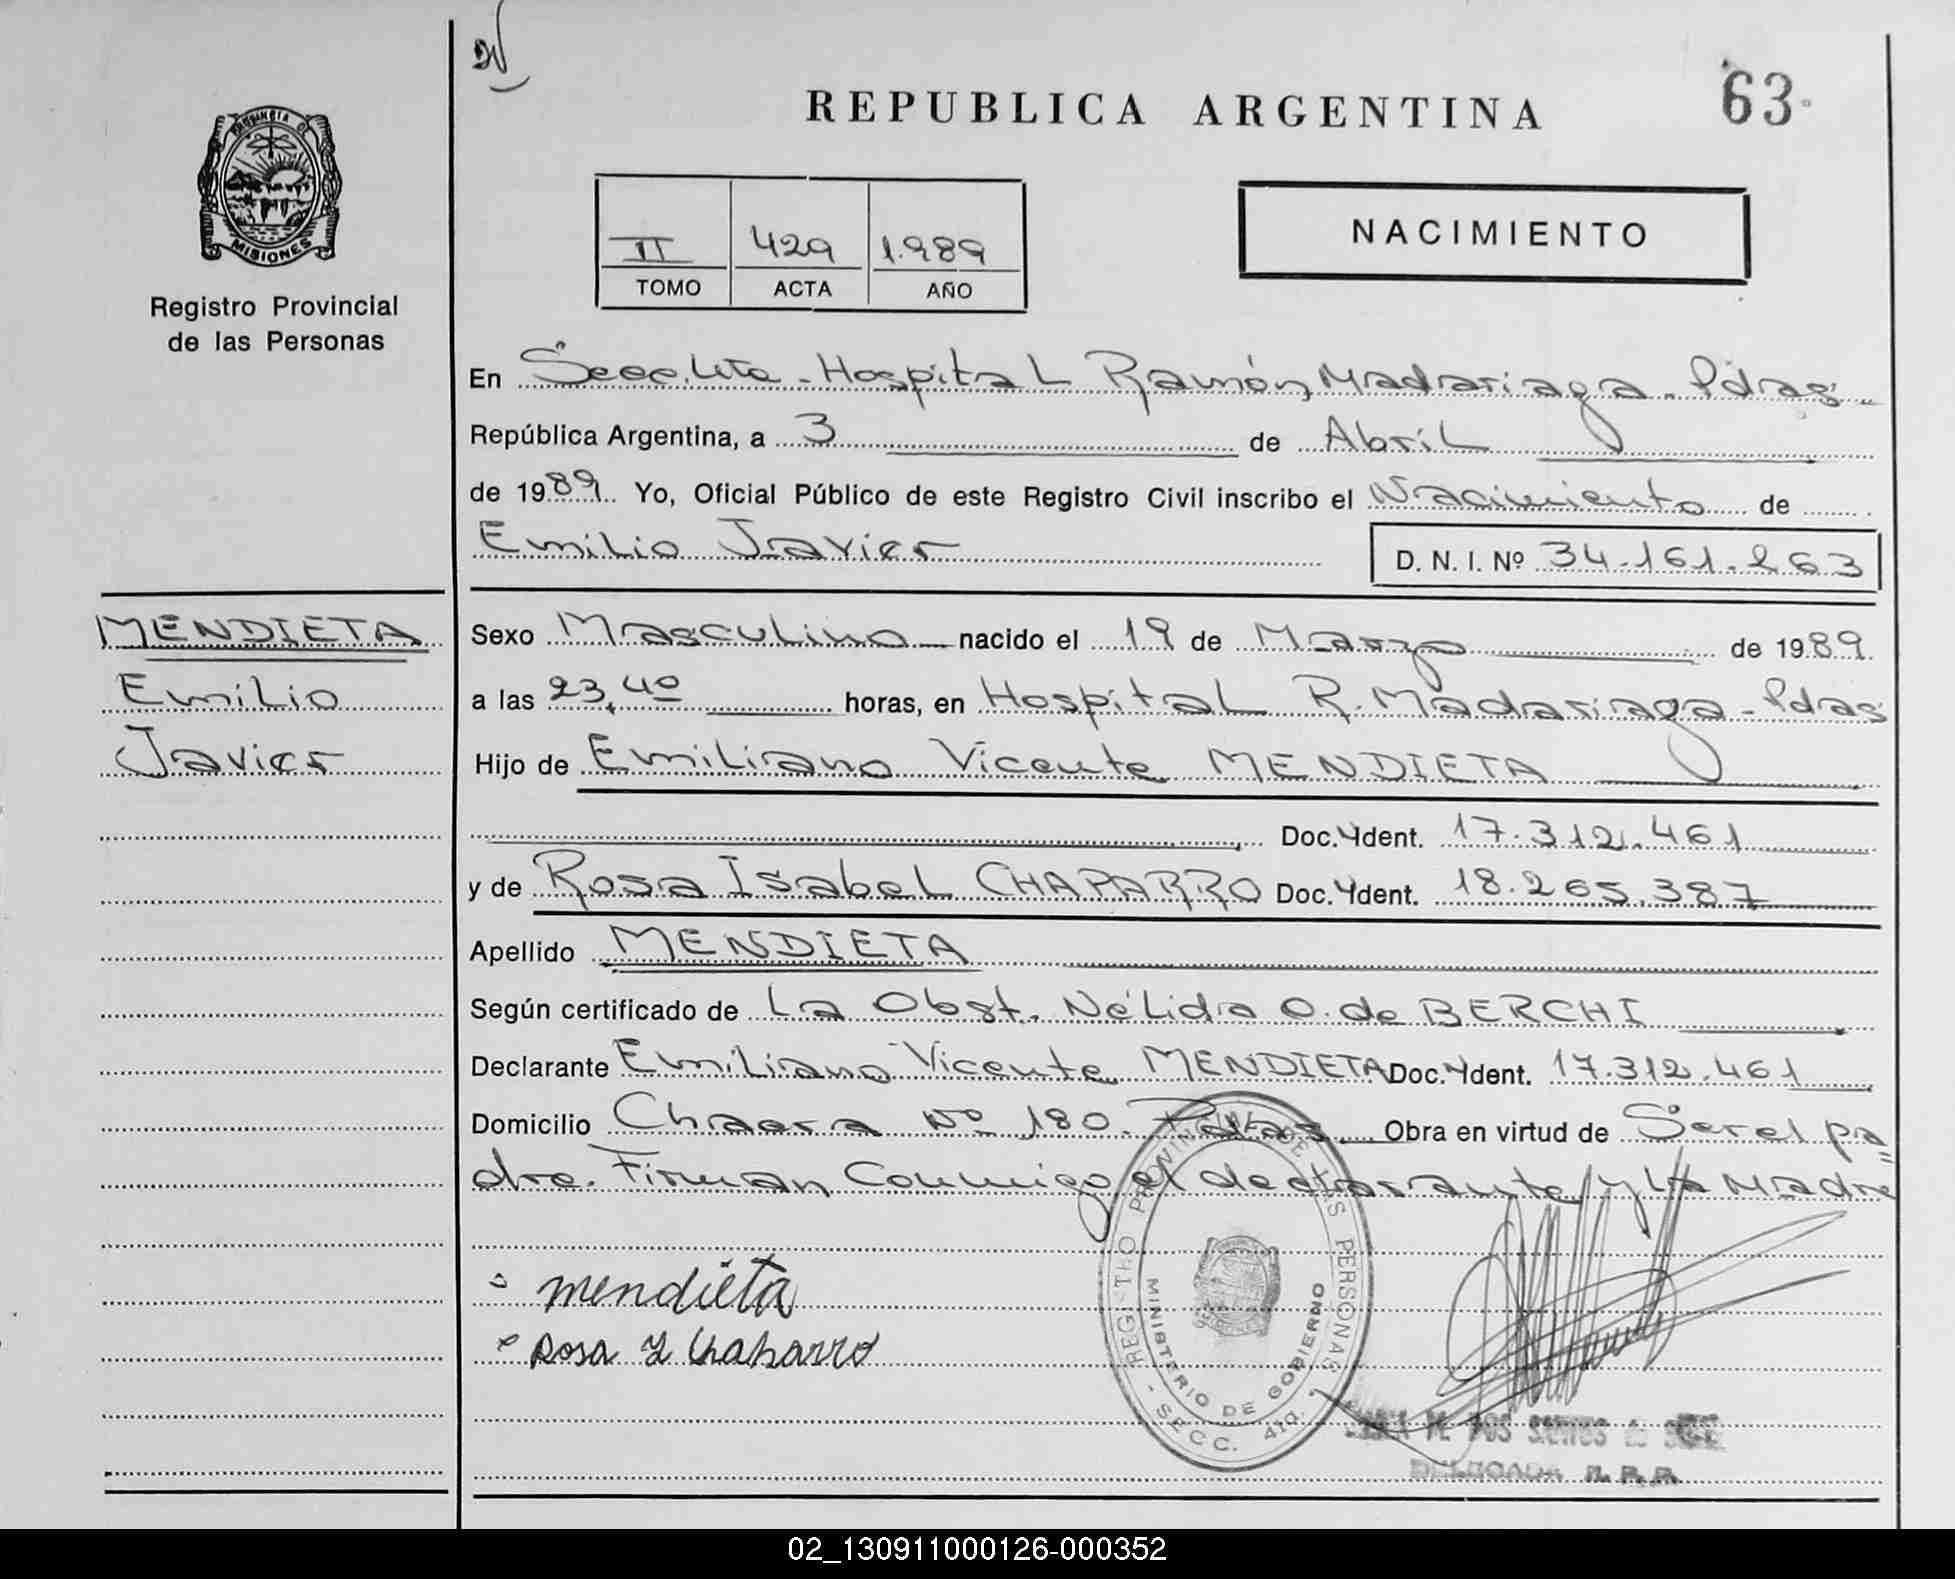 REPUBLICA ARGENTINA
63
PROVINCIA DE
MISIONES
Registro Provincial
de las Personas
II 429 1.989
TOMO ACTA AÑO
NACIMIENTO
En Secc. 4ta - Hospital Ramón Madariaga - Pdas -
República Argentina, a 3 de Abril
de 1989 Yo, Oficial Público de este Registro Civil inscribo el Nacimiento de
Emilio Javier D. N. I. Nº 34.161.263
MENDIETA
Emilio
Javier
Sexo Masculino nacido el 19 de Marzo de 1989
a las 23,40 horas, en Hospital R. Madariaga - Pdas
Hijo de Emiliano Vicente MENDIETA
Doc. Ydent. 17.312.461
y de Rosa Isabel CHAPARRO Doc. Ydent. 18.265.387
Apellido MENDIETA
Según certificado de La Obst. Nélida O. de BERCHI
Declarante Emiliano Vicente MENDIETA Doc. Ydent. 17.312.461
Domicilio Chacra Nº 180. Pdas Obra en virtud de Ser el pa=
dre. Firman Conmigo el declarante y La Madre
mendieta
Rosa I Chaparro
REGISTRO PROVINCIAL DE LAS PERSONAS
MINISTERIO DE GOBIERNO
SECC. 4ta.
DE DOS SANTOS de
DELEGADA R. P. P.
02_130911000126-000352